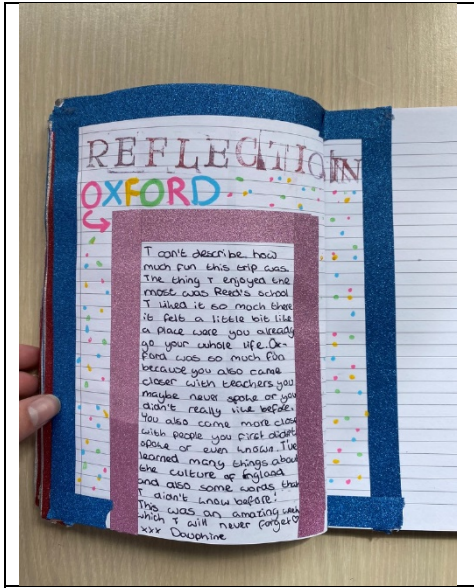 REFLECTION
OXFORD
I can't describe how
much fun this trip was.
The thing I enjoyed the
most was Reed's school
I liked it so much there
it felt a little bit like
a place were you already
go your whole life. Ox-
ford was so much fun
because you also came
closer with teachers you
maybe never spoke or you
didn't really like before.
You also come more close
with people you first didn't
spoke or even known. I've
learned many things about
the culture of England
and also some words that
I didn't know before!
This was an amazing week
which I will never forget♡
xxx Dauphine